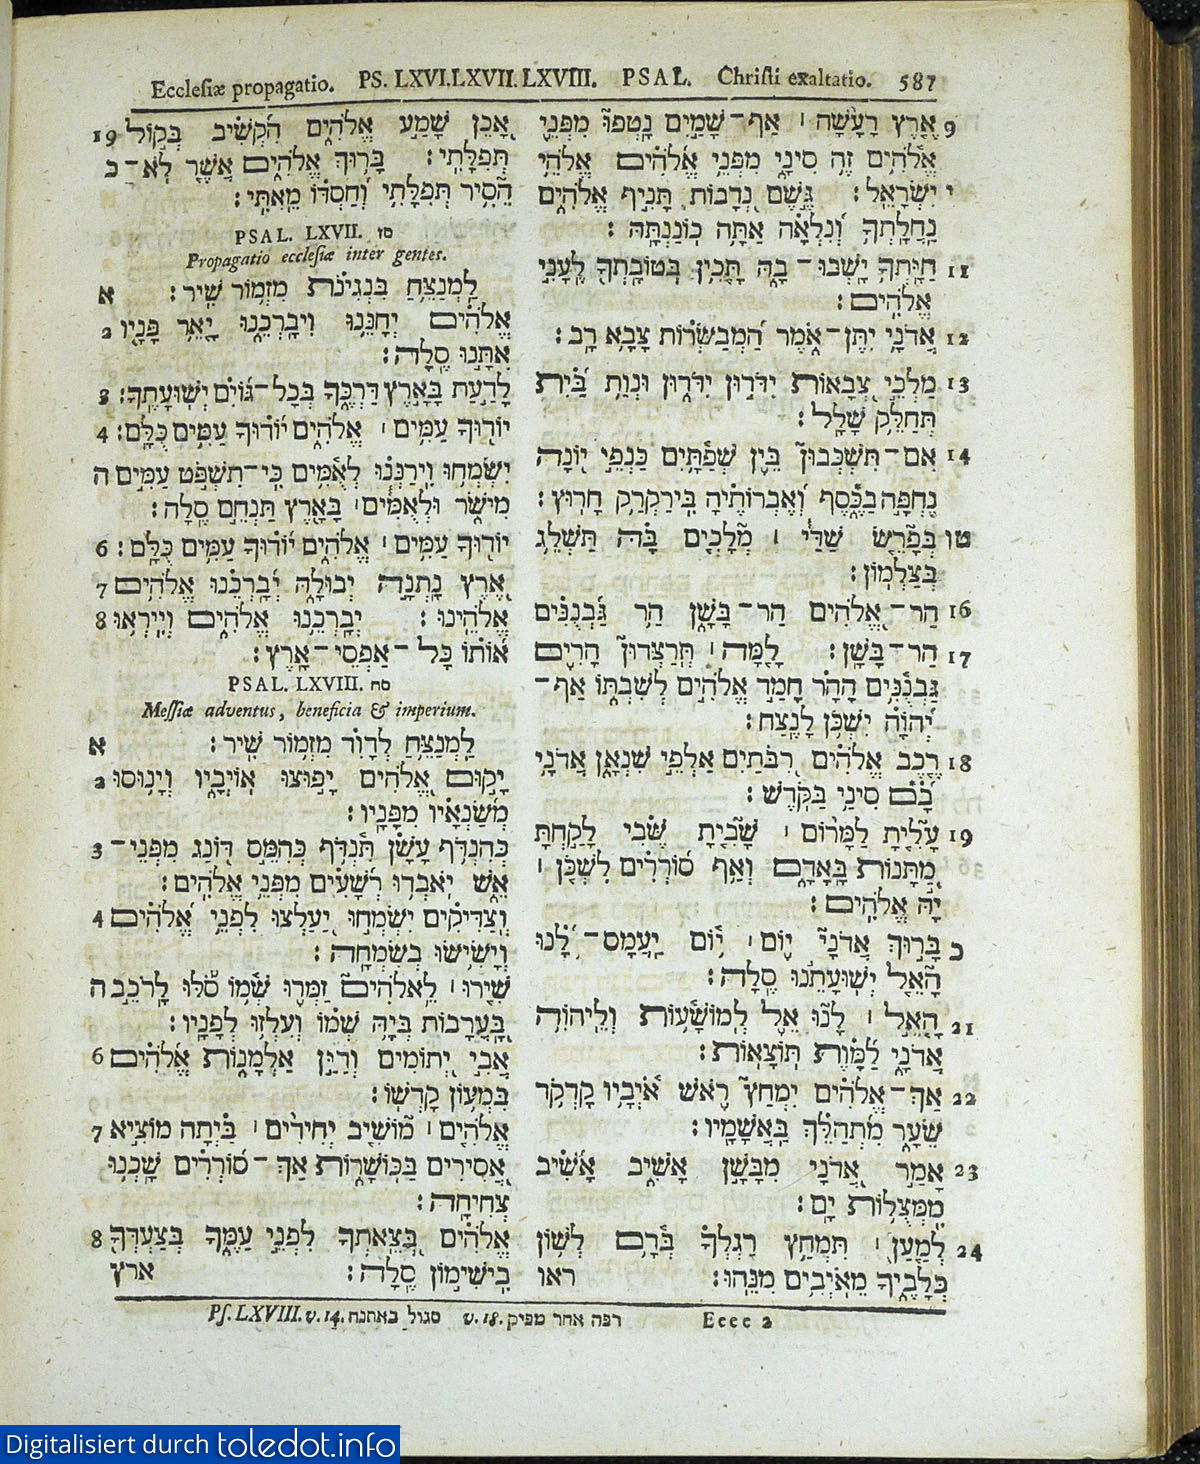 Ecclesiæ propagatio. PS. LXVI. LXVII. LXVIII. PSAL. Christi exaltatio. 587
אָכֵן שָׁמַע אֱלֹהִים הִקְשִׁיב בְּקוֹל 19
תְּפִלָּתִי׃ בָּרוּךְ אֱלֹהִים אֲשֶׁר לֹא־ כ
הֵסִיר תְּפִלָּתִי וְחַסְדּוֹ מֵאִתִּי׃
PSAL. LXVII. סז
Propagatio ecclesiæ inter gentes.
לַמְנַצֵּחַ בִּנְגִינֹת מִזְמוֹר שִׁיר׃ א
אֱלֹהִים יְחָנֵּנוּ וִיבָרְכֵנוּ יָאֵר פָּנָיו 2
אִתָּנוּ סֶלָה׃
לָדַעַת בָּאָרֶץ דַּרְכֶּךָ בְּכָל־גּוֹיִם יְשׁוּעָתֶךָ׃ 3
יוֹדוּךָ עַמִּים ׀ אֱלֹהִים יוֹדוּךָ עַמִּים כֻּלָּם׃ 4
יִשְׂמְחוּ וִירַנְּנוּ לְאֻמִּים כִּי־תִשְׁפֹּט עַמִּים ה
מִישֹׁר וּלְאֻמִּים ׀ בָּאָרֶץ תַּנְחֵם סֶלָה׃
יוֹדוּךָ עַמִּים ׀ אֱלֹהִים יוֹדוּךָ עַמִּים כֻּלָּם׃ 6
אֶרֶץ נָתְנָה יְבוּלָהּ יְבָרְכֵנוּ אֱלֹהִים 7
אֱלֹהֵינוּ׃ יְבָרְכֵנוּ אֱלֹהִים וְיִירְאוּ 8
אוֹתוֹ כָּל־אַפְסֵי־אָרֶץ׃
PSAL. LXVIII. סח
Messiæ adventus, beneficia & imperium.
לַמְנַצֵּחַ לְדָוִד מִזְמוֹר שִׁיר׃ א
יָקוּם אֱלֹהִים יָפוּצוּ אוֹיְבָיו וְיָנוּסוּ 2
מְשַׂנְאָיו מִפָּנָיו׃
כְּהִנְדֹּף עָשָׁן תִּנְדֹּף כְּהִמֵּס דּוֹנַג מִפְּנֵי־ 3
אֵשׁ יֹאבְדוּ רְשָׁעִים מִפְּנֵי אֱלֹהִים׃
וְצַדִּיקִים יִשְׂמְחוּ יַעַלְצוּ לִפְנֵי אֱלֹהִים 4
וְיָשִׂישׂוּ בְשִׂמְחָה׃
שִׁירוּ ׀ לֵאלֹהִים זַמְּרוּ שְׁמוֹ סֹלּוּ לָרֹכֵב ה
בָּעֲרָבוֹת בְּיָהּ שְׁמוֹ וְעִלְזוּ לְפָנָיו׃
אֲבִי יְתוֹמִים וְדַיַּן אַלְמָנוֹת אֱלֹהִים 6
בִּמְעוֹן קָדְשׁוֹ׃
אֱלֹהִים ׀ מוֹשִׁיב יְחִידִים ׀ בַּיְתָה מוֹצִיא 7
אֲסִירִים בַּכּוֹשָׁרוֹת אַךְ־סוֹרְרִים שָׁכְנוּ
צְחִיחָה׃
אֱלֹהִים בְּצֵאתְךָ לִפְנֵי עַמֶּךָ בְּצַעְדְּךָ 8
בִישִׁימוֹן סֶלָה׃ ארץ
9 אֶרֶץ רָעָשָׁה ׀ אַף־שָׁמַיִם נָטְפוּ מִפְּנֵי
אֱלֹהִים זֶה סִינַי מִפְּנֵי אֱלֹהִים אֱלֹהֵי
י יִשְׂרָאֵל׃ גֶּשֶׁם נְדָבוֹת תָּנִיף אֱלֹהִים
נַחֲלָתְךָ וְנִלְאָה אַתָּה כוֹנַנְתָּהּ׃
11 חַיָּתְךָ יָשְׁבוּ־בָהּ תָּכִין בְּטוֹבָתְךָ לֶעָנִי
אֱלֹהִים׃
12 אֲדֹנָי יִתֶּן־אֹמֶר הַמְבַשְּׂרוֹת צָבָא רָב׃
13 מַלְכֵי צְבָאוֹת יִדֹּדוּן יִדֹּדוּן וּנְוַת בַּיִת
תְּחַלֵּק שָׁלָל׃
14 אִם־תִּשְׁכְּבוּן בֵּין שְׁפַתָּיִם כַּנְפֵי יוֹנָה
נֶחְפָּה בַכֶּסֶף וְאֶבְרוֹתֶיהָ בִּירַקְרַק חָרוּץ׃
טו בְּפָרֵשׂ שַׁדַּי ׀ מְלָכִים בָּהּ תַּשְׁלֵג
בְּצַלְמוֹן׃
16 הַר־אֱלֹהִים הַר־בָּשָׁן הַר גַּבְנֻנִּים
17 הַר־בָּשָׁן׃ לָמָּה ׀ תְּרַצְּדוּן הָרִים
גַּבְנֻנִּים הָהָר חָמַד אֱלֹהִים לְשִׁבְתּוֹ אַף־
יְהוָה יִשְׁכֹּן לָנֶצַח׃
18 רֶכֶב אֱלֹהִים רִבֹּתַיִם אַלְפֵי שִׁנְאָן אֲדֹנָי
בָם סִינַי בַּקֹּדֶשׁ׃
19 עָלִיתָ לַמָּרוֹם ׀ שָׁבִיתָ שֶּׁבִי לָקַחְתָּ
מַתָּנוֹת בָּאָדָם וְאַף סוֹרְרִים לִשְׁכֹּן ׀
יָהּ אֱלֹהִים׃
כ בָּרוּךְ אֲדֹנָי יוֹם ׀ יוֹם יַעֲמָס־לָנוּ
הָאֵל יְשׁוּעָתֵנוּ סֶלָה׃
21 הָאֵל ׀ לָנוּ אֵל לְמוֹשָׁעוֹת וְלֵיהוִה
אֲדֹנָי לַמָּוֶת תּוֹצָאוֹת׃
22 אַךְ־אֱלֹהִים יִמְחַץ רֹאשׁ אֹיְבָיו קָדְקֹד
שֵׂעָר מִתְהַלֵּךְ בַּאֲשָׁמָיו׃
23 אָמַר אֲדֹנָי מִבָּשָׁן אָשִׁיב אָשִׁיב
מִמְּצֻלוֹת יָם׃
24 לְמַעַן ׀ תִּמְחַץ רַגְלְךָ בְּדָם לְשׁוֹן
כְּלָבֶיךָ מֵאֹיְבִים מִנֵּהוּ׃ ראו
Ps. LXVIII. v. 14. סגול באתנח v. 18. רפה אחר מפיק Eeee 2
Digitalisiert durch toledot.info